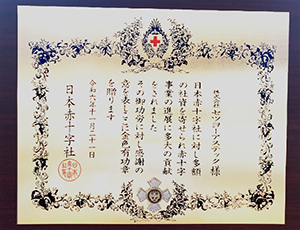 株式会社セブリーズステック様
日本赤十字社に対し多額
の社資を寄せられ赤十字
事業の進展に多大の貢献
をされました
その御功労に対し感謝の
意を表しここに金色有功章
を贈ります
令和六年十一月二十一日
日本赤十字社